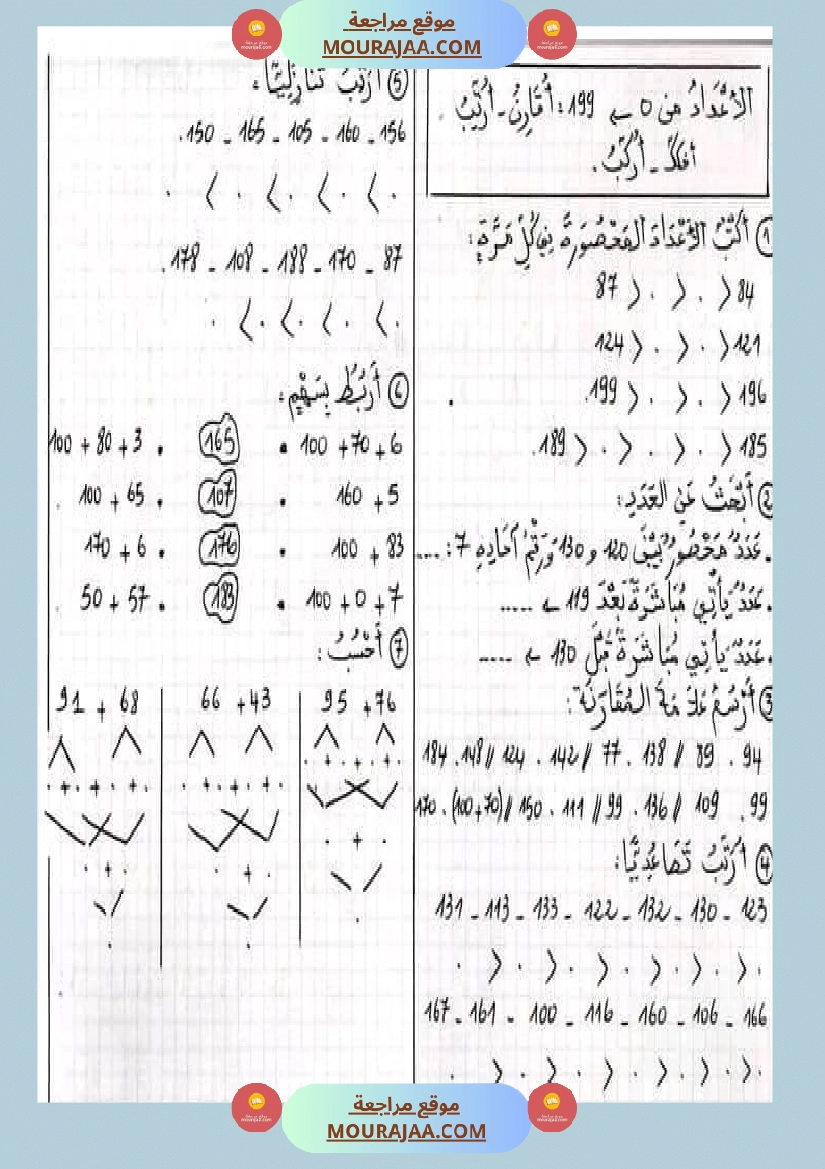 موقع مراجعة
MOURAJAA.COM
الأَعْدَادُ من 0 ← 199 : أُقَارِنُ - أُرَتِّبُ .
أفكّك - أُرَكِّبُ .
① أَكْتُبُ الأَعْدَادَ المَحْصُورَةَ في كُلِّ مَرَّةٍ :
84 〉 . 〉 . 〉 87
121 〉 . 〉 . 〉 124
196 〉 . 〉 . 〉 199.
185 〉 . 〉 . 〉 . 〉 189.
② أَبْحَثُ عَنِ العَدَدِ :
. عَدَدٌ مَحْصُورٌ بَيْنَ 120 و 130 وَرَقْمُ آحَادِهِ 7 : ....
. عَدَدٌ يَأْتِي مُبَاشَرَةً بَعْدَ 119 ← .....
. عَدَدٌ يَأْتِي مُبَاشَرَةً قَبْلَ 130 ← .....
③ أَرْسُمُ عَلَامَةَ المُقَارَنَة :
94 . 89 // 138 . 77 // 142 . 124 // 148 . 184
99 . 109 // 136 . 99 // 111 . 150 // (100+70) . 170
④ أُرَتِّبُ تَصَاعُدِيًّا :
123 - 130 - 132 - 122 - 133 - 113 - 131
. 〉 . 〉 . 〉 . 〉 . 〉 . 〉 .
166 - 106 - 160 - 116 - 100 - 161 - 167
. 〉 . 〉 . 〉 . 〉 . 〉 . 〉 .
⑤ أُرَتِّبُ تَنَازُلِيًّا :
156 - 160 - 105 - 165 - 150 .
. 〈 . 〈 . 〈 . 〈 .
87 - 170 - 188 - 108 - 178 .
. 〈 . 〈 . 〈 . 〈 .
⑥ أَرْبُطُ بِسَهْمٍ :
100 + 70 + 6 . 165 . 100 + 80 + 3
160 + 5 . 107 . 100 + 65
100 + 83 . 176 . 170 + 6
100 + 0 + 7 . 183 . 50 + 57
⑦ أَحْسُبُ :
95 + 76
. + . + . + .
. + .
.
66 + 43
. + . + . + .
. + .
.
91 + 68
. + . + . + .
. + .
.
موقع مراجعة
MOURAJAA.COM